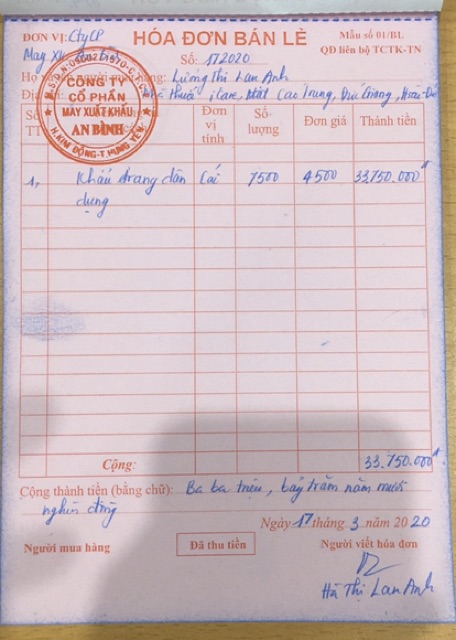 ĐƠN VỊ: Cty CP HÓA ĐƠN BÁN LẺ Mẫu số 01/BL
May XK An Bình Số: 172020 QĐ liên bộ TCTK-TN
Họ tên người mua hàng: Lương Thị Lan Anh
Địa chỉ: Cao Trung, Đức Giang, Hoài Đức
CÔNG TY
CỔ PHẦN
MAY XUẤT KHẨU
AN BÌNH
H.KIM ĐỘNG-T.HƯNG YÊN
Số TT Đơn vị tính Số lượng Đơn giá Thành tiền
1, Khẩu trang dân dụng Cái 7500 4500 33.750.000đ
Cộng: 33.750.000đ
Cộng thành tiền (bằng chữ): Ba ba triệu, bảy trăm năm mươi
nghìn đồng
Ngày 17 tháng 3 năm 2020
Người mua hàng Đã thu tiền Người viết hóa đơn
Hà Thị Lan Anh